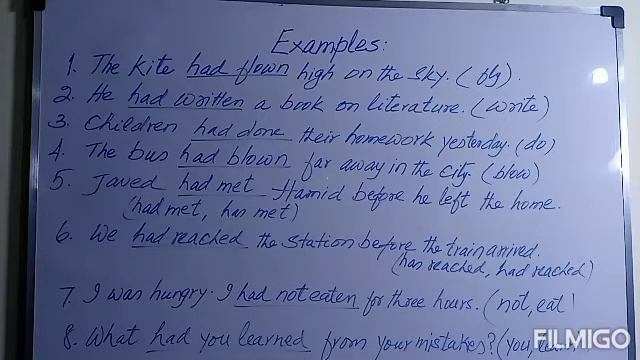 Examples:
1. The Kite had flown high on the sky. (fly).
2. He had written a book on literature. (write)
3. Children had done their homework yesterday. (do)
4. The bus had blown far away in the city. (blow)
5. Javed had met Hamid before he left the home.
(had met, has met)
6. We had reached the station before the train arrived.
(has reached, had reached)
7. I was hungry. I had not eaten for three hours. (not, eat)
8. What had you learned from your mistakes? (you,
FILMIGO